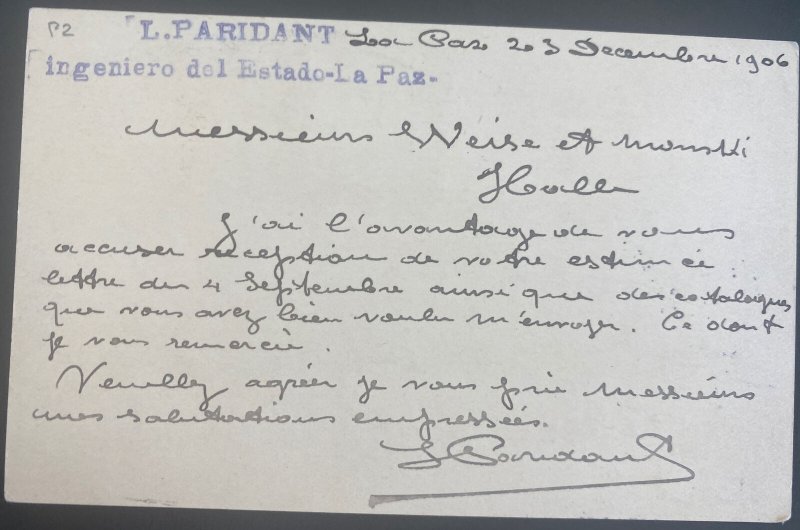 P2
L. PARIDANT La Paz 23 Decembre 1906
ingeniero del Estado-La Paz-
Messieurs Weise et Monski
Halle
J'ai l'avantage de vous
accuser reception de votre estimée
lettre du 4 Septembre ainsi que des catalogues
que vous avez bien voulu m'envoyer. Ce dont
je vous remercie.
Veuillez agréer je vous prie Messieurs
mes salutations empressées.
L Paridant